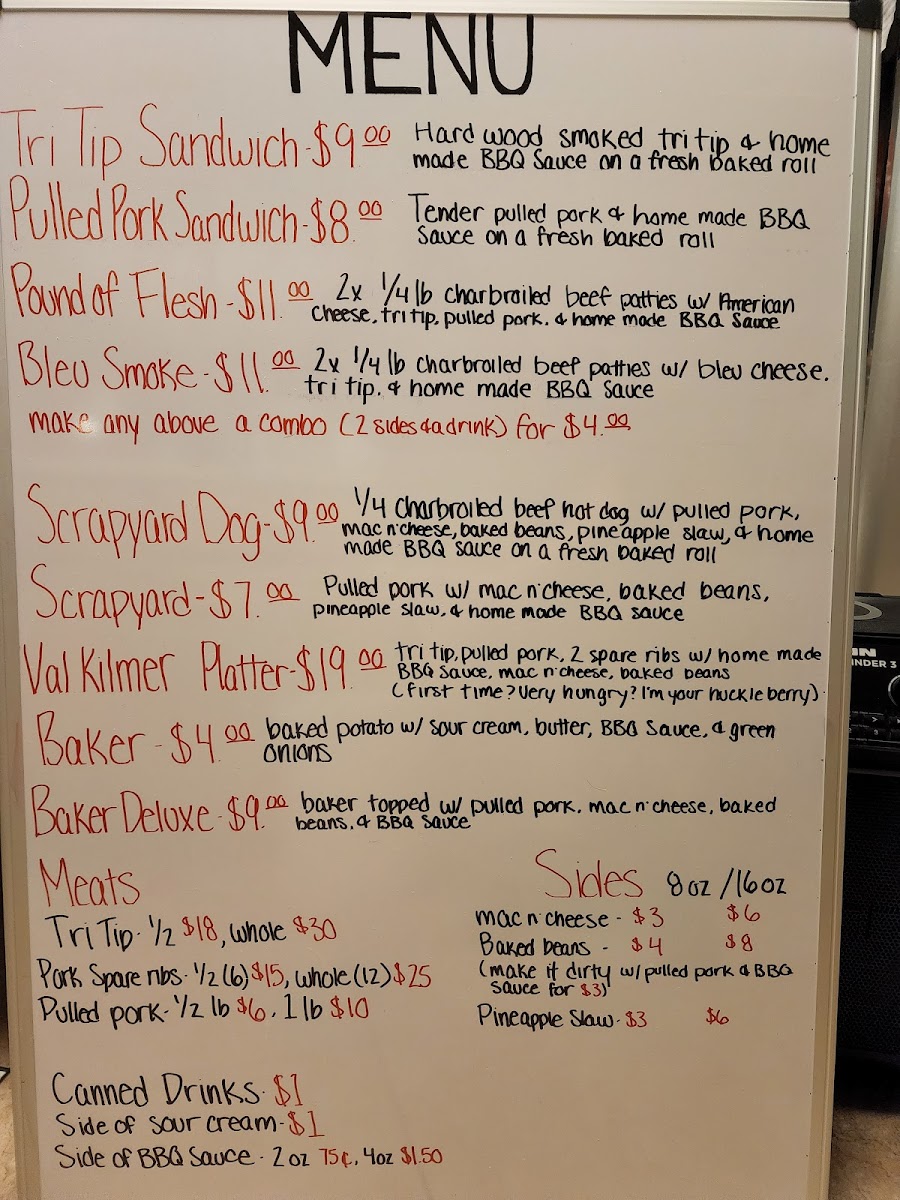 MENU
Tri Tip Sandwich-$9.00 Hard wood smoked tri tip & home
made BBQ Sauce on a fresh baked roll
Pulled Pork Sandwich-$8.00 Tender pulled pork & home made BBQ
Sauce on a fresh baked roll
Pound of Flesh-$11.00 2x 1/4 lb charbroiled beef patties w/ American
Cheese, tri tip, pulled pork, & home made BBQ Sauce
Bleu Smoke-$11.00 2x 1/4 lb charbroiled beef patties w/ bleu cheese,
tri tip, & home made BBQ Sauce
make any above a combo (2 sides & a drink) for $4.00
Scrapyard Dog-$9.00 1/4 charbroiled beef hot dog w/ pulled pork,
mac n' cheese, baked beans, pineapple slaw, & home
made BBQ sauce on a fresh baked roll
Scrapyard-$7.00 Pulled pork w/ mac n' cheese, baked beans,
pineapple slaw, & home made BBQ sauce
Val Kilmer Platter-$19.00 tri tip, pulled pork, 2 spare ribs w/ home made
BBQ Sauce, mac n' cheese, baked beans
(first time? Very hungry? I'm your huckle berry)
Baker-$4.00 baked potato w/ sour cream, butter, BBQ Sauce, & green
onions
Baker Deluxe-$9.00 baker topped w/ pulled pork, mac n' cheese, baked
beans, & BBQ Sauce
Meats
Tri Tip- 1/2 $18, whole $30
Pork Spare ribs- 1/2 (6) $15, whole (12) $25
Pulled pork- 1/2 lb $6, 1 lb $10
Sides 8oz /16oz
mac n' cheese - $3 $6
Baked beans - $4 $8
(make it dirty w/ pulled pork & BBQ
sauce for $3)
Pineapple Slaw- $3 $6
Canned Drinks- $1
Side of sour cream- $1
Side of BBQ Sauce - 2oz 75¢, 4oz $1.50
IN
INDER 3